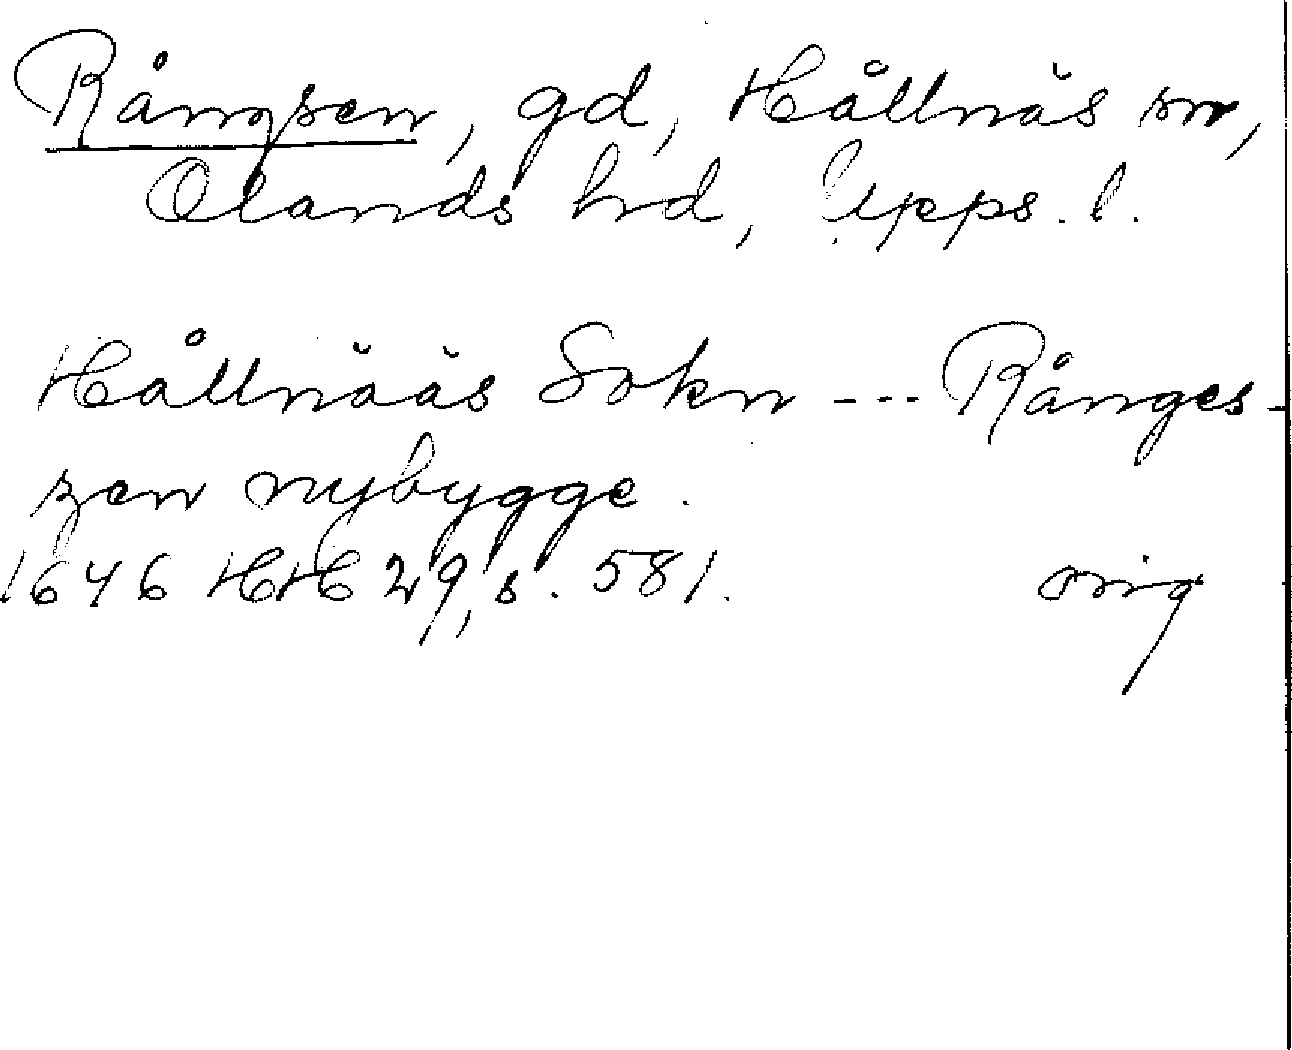 Rångsen, gd, Hållnäs sn,
Olands hrd, Upps. l.
Hållnääs Sokn --- Rånges-
zen nybygge.
1646 HH 29, s. 581. orig